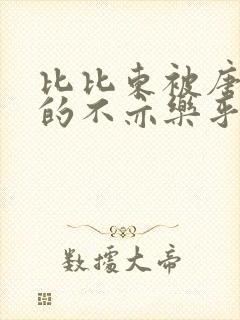 比比东被唐
的不亦樂乎
数據大帝